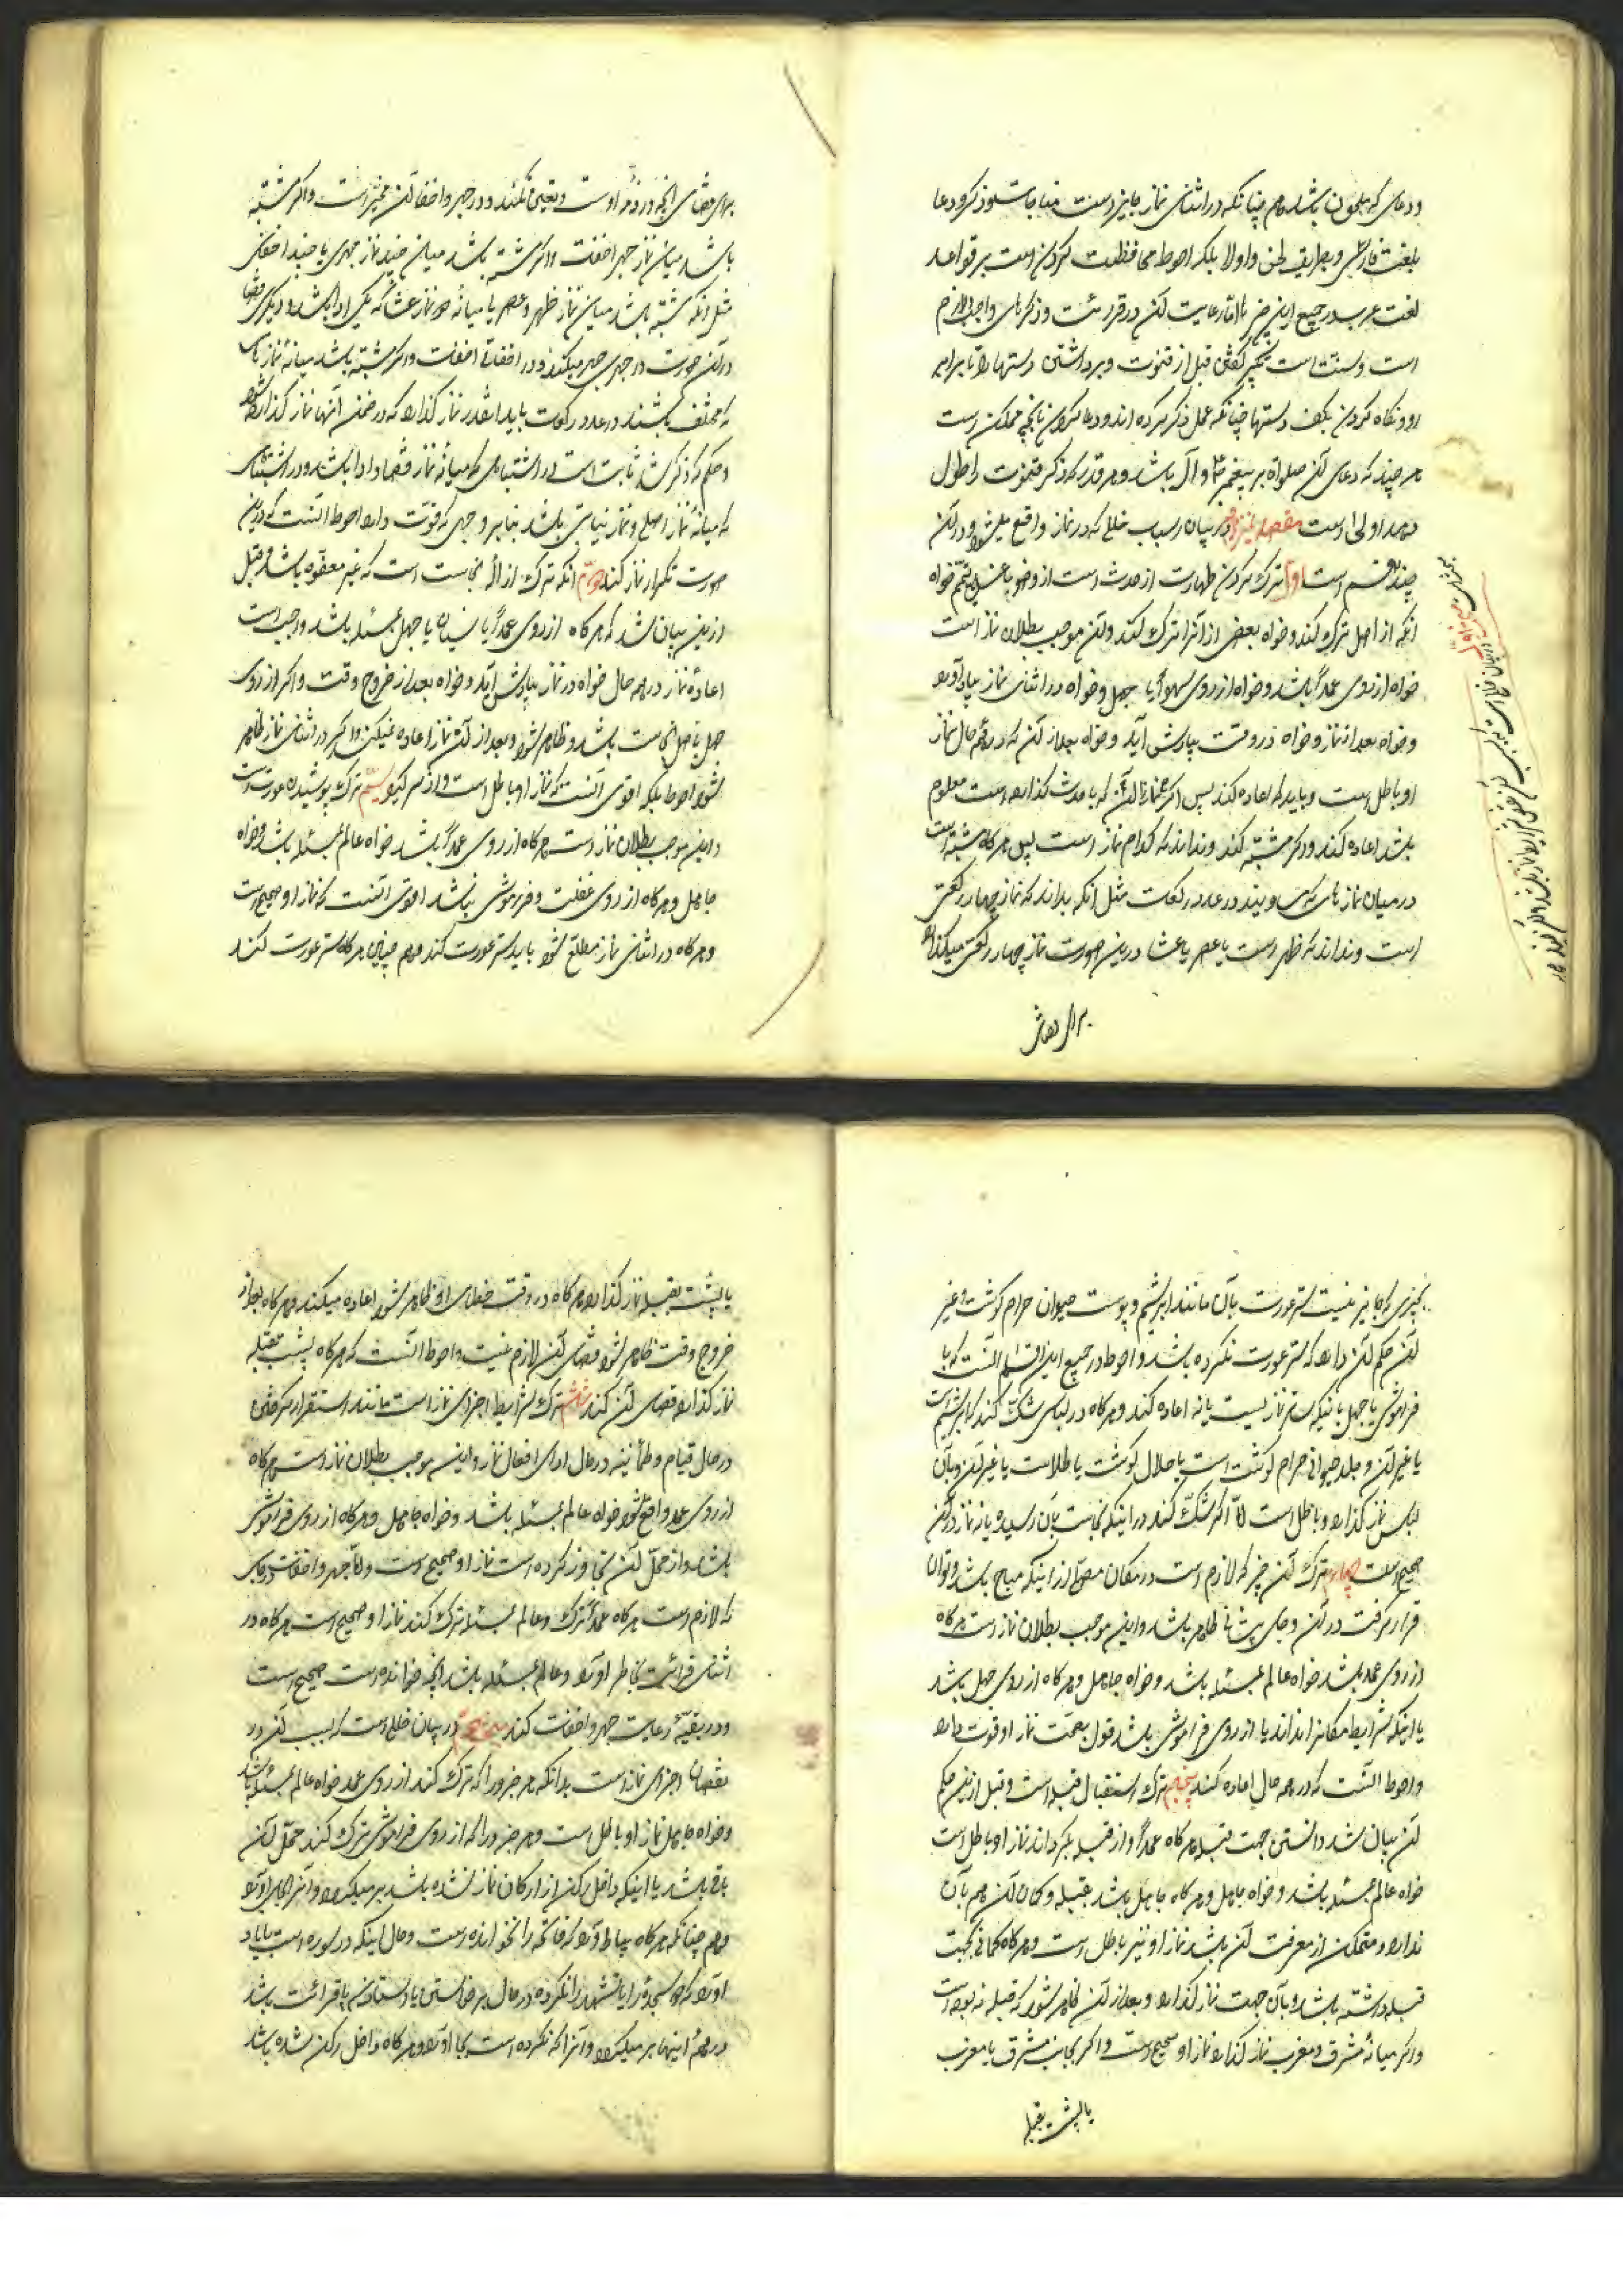 ودعای که ملحون باشد هم چنانکه در اثنای نماز جایز است مناجات و ذکر و دعا
بلغت فارسی و بطریق لحن و اولا بلکه احوط محافظت کردن است بر قواعد
لغت عرب در جمیع این رعایت آن در قرائت و ذکرهای واجبی لازم
است و سنت است تکبیر گفتن قبل از قنوت و برداشتن دستها را تا برابر
رو و نگاه کردن بکف دستها چنانکه عمل ذکر کرده اند و دعا کردن بانچه ممکن است
هر چند که دعای آن صلواة بر پیغمبر و آل باشد و هر قدر که ذکر قنوت را طول
دهد اولی است مقصد در بیان اسباب خللی که در نماز واقع میشود و در آن
چند قسم است اول ترک کردن طهارت از حدث است از وضو یا غسل یا تیمم خواه
آنکه از اصل ترک کند و خواه بعضی از آنرا ترک کند و آن موجب بطلان نماز است
خواه از روی عمد باشد و خواه از روی سهو یا جهل و خواه در اثنای نماز بیاد آورد
و خواه بعد از نماز و خواه در وقت بیادش آید و خواه بعد از آن که در همه حال نماز
او باطل است و باید که اعاده کند پس اگر نماز آن که با حدث گذارده است معلوم
باشد اعاده کند و اگر مشتبه کند و نداند که کدام نماز است پس هرگاه مشتبه است
در میان نماز های که مساویند در عدد رکعت مثل آنکه بداند که نماز چهار رکعتی
است و نداند که ظهر است یا عصر یا عشا در این صورت نماز چهار رکعتی میگذارد
برای قضای
برای قضای آنچه در ذمه اوست و تعیین نکند و در جهر و اخفا آن مخیر است و اگر مشتبه
باشد میان نماز جهر اخفت و اگر مشتبه باشد میان چند نماز جهری یا چند اخفاتی
مثل آنکه مشتبه باشد میان نماز ظهر و عصر یا میانه دو نماز عشا که یکی ادا باشد و دیگری قضا
در آن صورت در جهری جهر میکند و در اخفاتی اخفات و اگر مشتبه باشد میانه نماز های
که مختلف باشند در عدد رکعات باید آنقدر نماز گذارد که در ضمن آنها نماز گذارده شود
و حکم که ذکر شد ثابت است در اشتباهی که میانه نماز قضا و ادا باشد و در اشتباهی
که میانه نماز اصلی و نماز نیابتی باشد بنابر وجهی که قوت دارد احوط آنست که در این
صورت تکرار نماز کند دوم آنکه ترک ازاله نجاست است که غیر معفوه باشد و قبل
از این بیان شد که هرگاه از روی عمد یا نسیان یا جهل بمسئله باشد واجب است
اعاده نماز در همه حال خواه در نماز بیادش آید و خواه بعد از خروج وقت و اگر از روی
جهل باصل نجاست باشد و ظاهر شود بعد از آن نماز اعاده نمیکند و اگر در اثنای نماز ظاهر
شود احوط بلکه اقوی آنست که نماز او باطل است و از سر گیرد سیم ترک پوشیدن عورت است
و این موجب بطلان نماز است هرگاه از روی عمد باشد خواه عالم بمسئله باشد و خواه
جاهل و هرگاه از روی غفلت و فراموشی باشد اقوی آنست که نماز او صحیح است
و هرگاه در اثنای نماز مطلع شود باید ستر عورت کند و هم چنین هرگاه ستر عورت کند
بچیزی که جایز نیست ستر عورت بآن مانند ابریشم و پوست حیوان حرام گوشت و غیر
آن حکم آن دارد که ستر عورت نکرده باشد و احوط در جمیع این اقسام آنست که با
فراموشی یا جهل باینکه ساتر نماز نیست یا نه اعاده کند و هرگاه در لباسی شک کند که ابریشم است
یا غیر آن و جلد حیوانی حرام گوشت است یا حلال گوشت یا طلاست یا غیر آن و بآن
لباس نماز گذارد و باطل است اما اگر شک کند در اینکه نجاست بآن رسیده یا نه نماز در آن
صحیح است چهارم ترک آن چیز که لازم است در مکان مصلی از اینکه مباح باشد و توان
قرار گرفت در آن و جای پیشانی طاهر باشد و این موجب بطلان نماز است هرگاه
از روی عمد باشد خواه عالم بمسئله باشد و خواه جاهل و هرگاه از روی جهل باشد
یا اینکه شرایط مکانرا نداند یا از روی فراموشی باشد قول بصحت نماز او قوت دارد
و احوط آنست که در همه حال اعاده کند پنجم ترک استقبال قبله است و قبل از این حکم
آن بیان شد دانستن جهت قبله هرگاه عمداً رو از قبله بگرداند نماز او باطل است
خواه عالم بمسئله باشد و خواه جاهل و هرگاه جاهل باشد بقبله و گمان آن هم بآن
ندارد و متمکن از معرفت آن باشد نماز او نیز باطل است و هرگاه گمانی بجهت
قبله داشته باشد و بآن جهت نماز گذارد و بعد از آن ظاهر شود که قبله نه بوده است
و اگر میانه مشرق و مغرب نماز گذارد نماز او صحیح است و اگر بجانب مشرق یا مغرب
یا پشت بقبله
یا پشت بقبله نماز گذارد هرگاه در وقت خطای او ظاهر شود اعاده میکند و هرگاه بعد از
خروج وقت ظاهر شود قضای آن لازم نیست و احوط آنست که هرگاه پشت بقبله
نماز گذارد قضای آن کند ششم ترک شرایط اجزای نماز است مانند استقرار
در حال قیام و طمأنینه در حال ادای افعال نماز و این موجب بطلان نماز است هرگاه
از روی عمد واقع شود خواه عالم بمسئله باشد و خواه جاهل و هرگاه از روی فراموشی
باشد و از محل آن تجاوز کرده است نماز او صحیح است و اما جهر و اخفات در جای
که لازم است هرگاه عمداً ترک و عالم بمسئله ترک کند نماز او صحیح است هرگاه در
اثنای قرائت بخاطر آورد و عالم بمسئله باشد آنچه خوانده است صحیح است
و در بقیه رعایت جهر و اخفات کند در بیان خللی است که بسبب آن در
نقصان اجزای نماز است بدانکه هر جزو را که ترک کند از روی عمد خواه عالم بمسئله باشد
و خواه جاهل نماز او باطل است و هر جزو را که از روی فراموشی ترک کند محل آن
باقی باشد یا اینکه داخل رکن از ارکان نماز نشده باشد بر میگردد و آنرا بجای آورد
و هم چنانکه هرگاه بیاد آورد که فاتحه را نخوانده است و حال اینکه در سوره است یا یاد
آورد که سجود را یا تشهد را نکرده در حال برخواستن یا دستادن یا قرائت باشد
در همه اینها بر میگردد و آنرا که نکرده است بجا آورد و هرگاه داخل رکن شده باشد